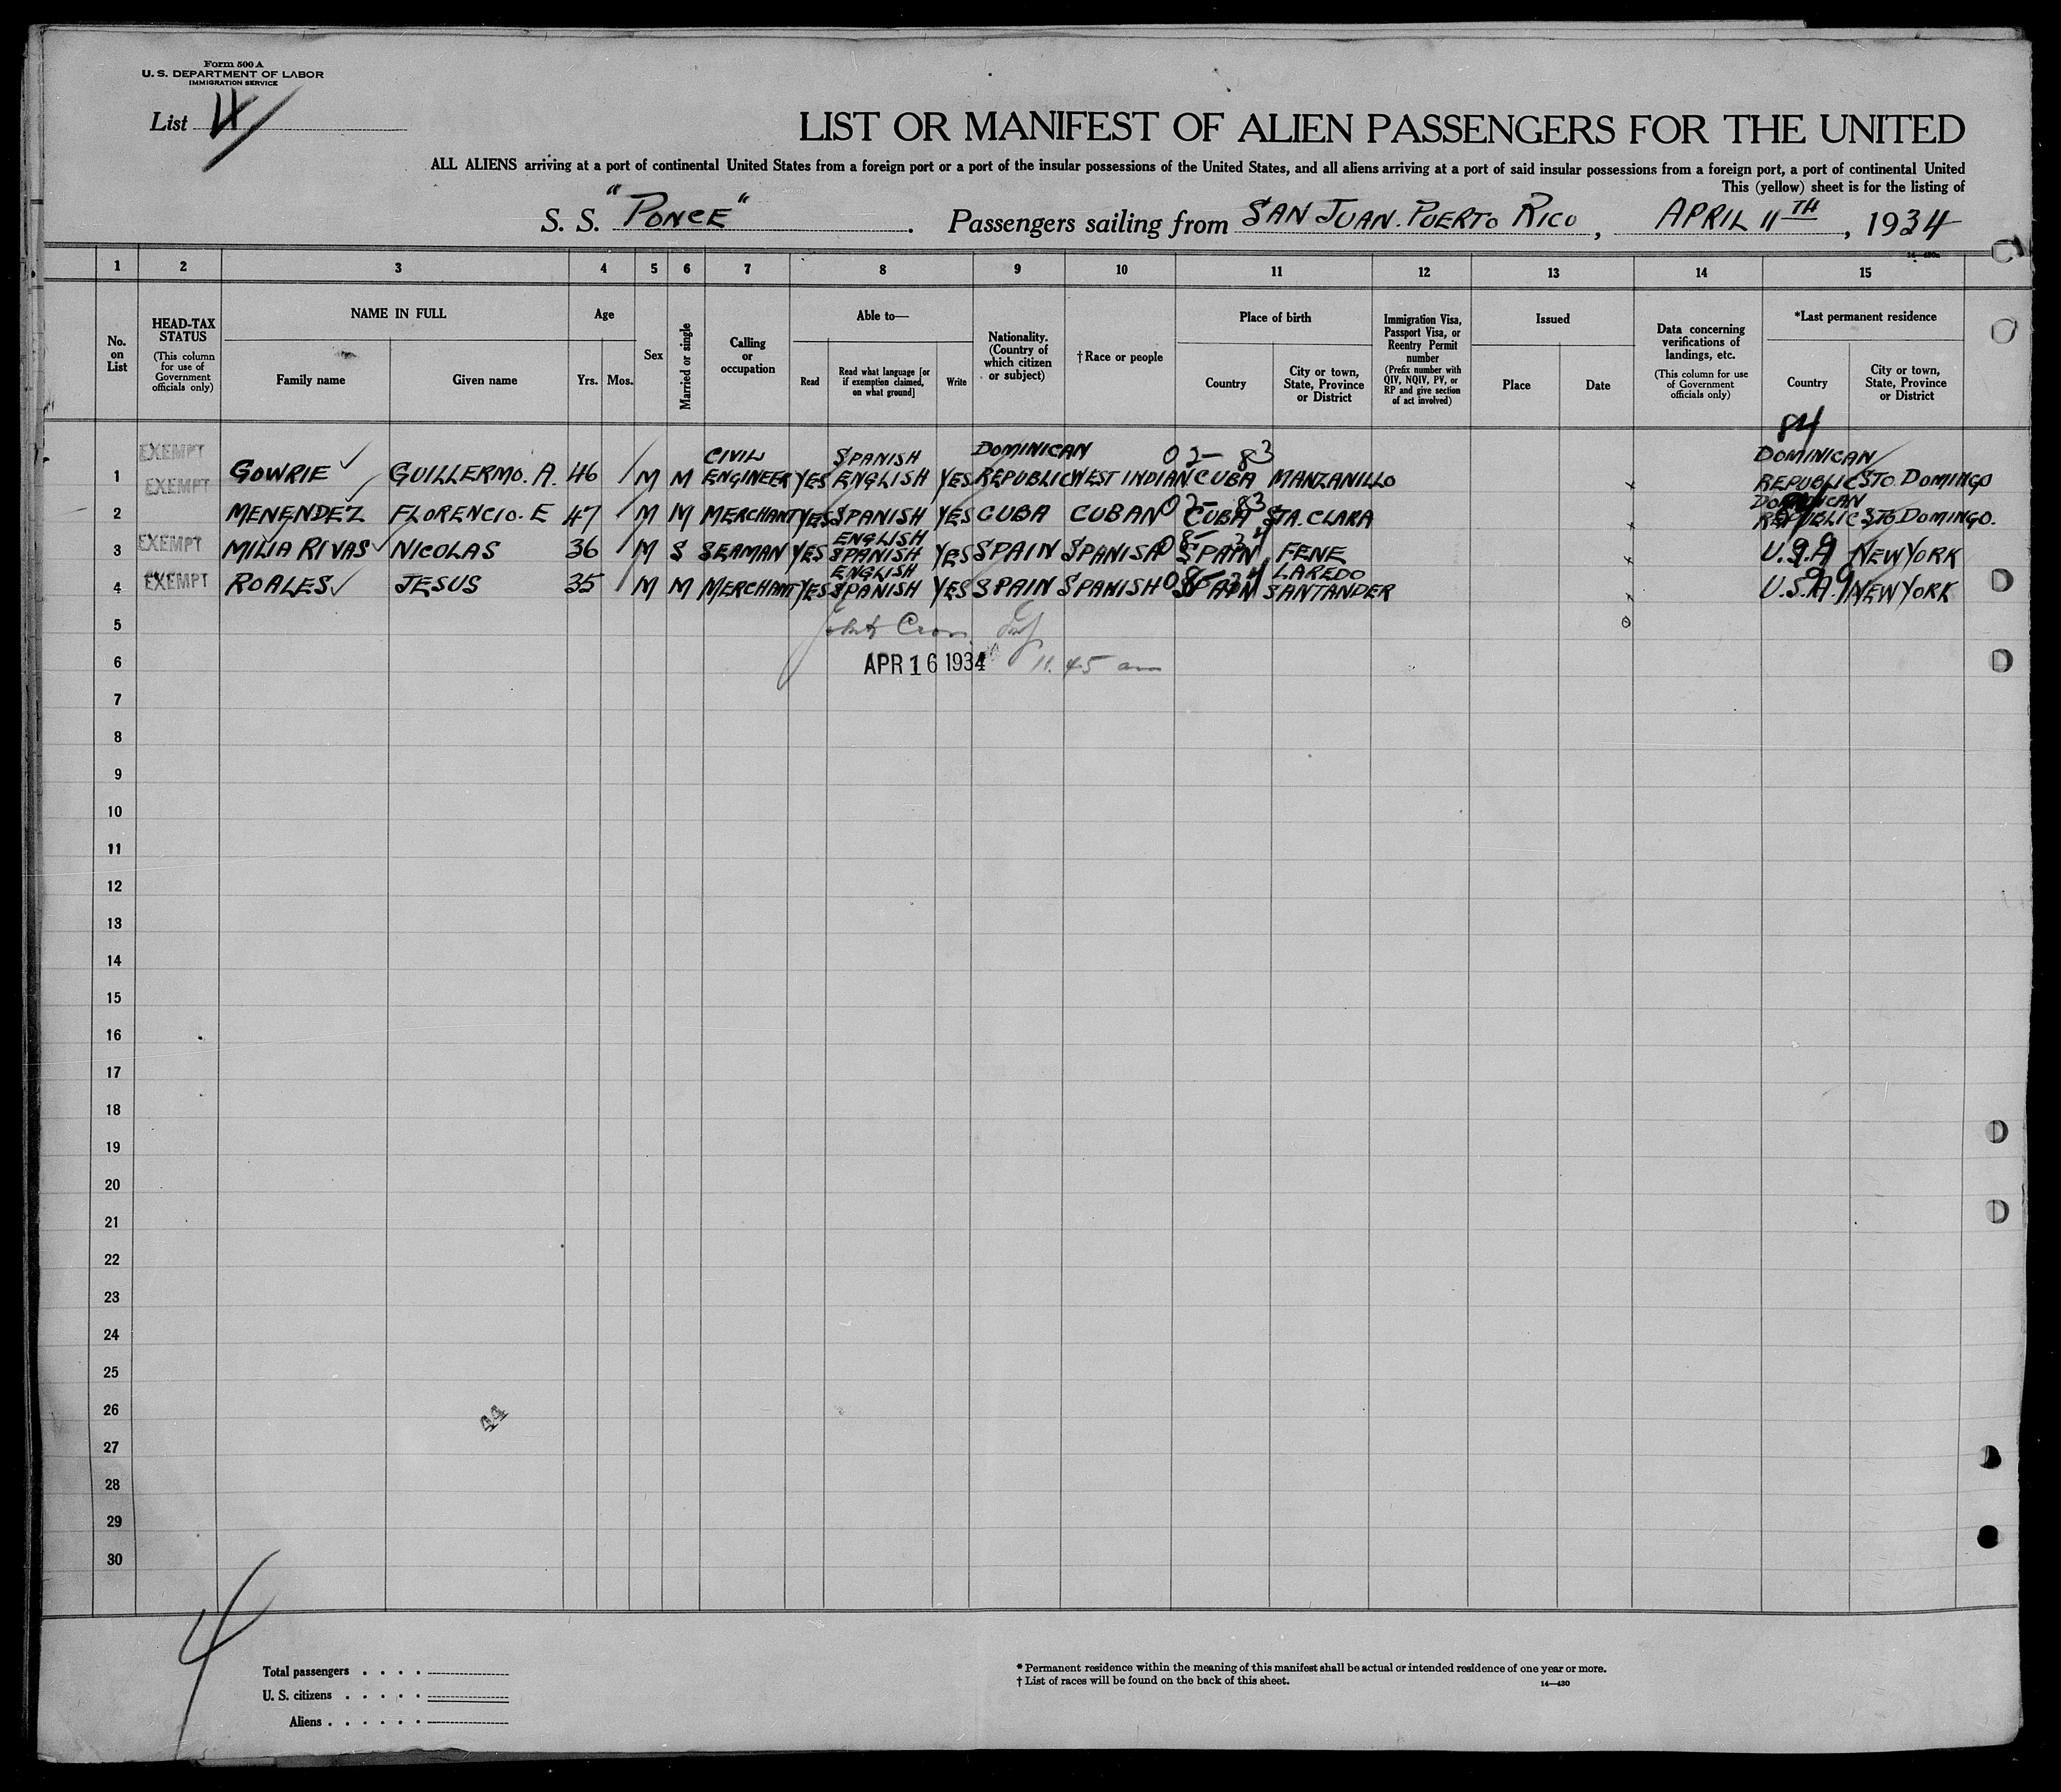 Form 500 A
U. S. DEPARTMENT OF LABOR
IMMIGRATION SERVICE
List 4
LIST OR MANIFEST OF ALIEN PASSENGERS FOR THE UNITED
ALL ALIENS arriving at a port of continental United States from a foreign port or a port of the insular possessions of the United States, and all aliens arriving at a port of said insular possessions from a foreign port, a port of continental United
This (yellow) sheet is for the listing of
S. S. "PONCE". Passengers sailing from SAN JUAN. PUERTO RICO, APRIL 11TH, 1934
1 2 3 4 5 6 7 8 9 10 11 12 13 14 15
No. on List
HEAD-TAX STATUS (This column for use of Government officials only)
NAME IN FULL
Family name
Given name
Age
Yrs. Mos.
Sex
Married or single
Calling or occupation
Able to—
Read
Read what language [or if exemption claimed, on what ground]
Write
Nationality. (Country of which citizen or subject)
†Race or people
Place of birth
Country
City or town, State, Province or District
Immigration Visa, Passport Visa, or Reentry Permit number (Prefix number with QIV, NQIV, PV, or RP and give section of act involved)
Issued
Place
Date
Data concerning verifications of landings, etc. (This column for use of Government officials only)
*Last permanent residence
Country
City or town, State, Province or District
84
EXEMPT CIVIL SPANISH DOMINICAN 02- 83 DOMINICAN
1 GOWRIE GUILLERMO. A. 46 M M ENGINEER YES ENGLISH YES REPUBLIC WEST INDIAN CUBA MANZANILLO REPUBLIC STO. DOMINGO
EXEMPT 02- 83 DOMINICAN
2 MENENDEZ FLORENCIO. E 47 M M MERCHANT YES SPANISH YES CUBA CUBAN CUBA STA. CLARA REPUBLIC STO. DOMINGO.
ENGLISH
3 EXEMPT MILIA RIVAS NICOLAS 36 M S SEAMAN YES SPANISH YES SPAIN SPANISH SPAIN FENE U.S.A NEW YORK
ENGLISH LAREDO
4 EXEMPT ROALES JESUS 35 M M MERCHANT YES SPANISH YES SPAIN SPANISH SPAIN SANTANDER U.S.A. NEW YORK
5
6 APR 16 1934 11.45 am
7
8
9
10
11
12
13
14
15
16
17
18
19
20
21
22
23
24
25
26
44
27
28
29
30
4
Total passengers . . . .
U. S. citizens . . . . .
Aliens . . . . . .
* Permanent residence within the meaning of this manifest shall be actual or intended residence of one year or more.
† List of races will be found on the back of this sheet.
14—430